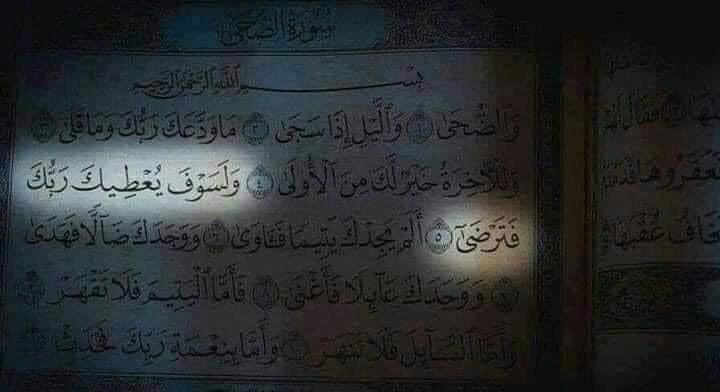 سُورَةُ الضُّحَىٰ
بِسْمِ ٱللَّهِ ٱلرَّحْمَٰنِ ٱلرَّحِيمِ
وَٱلضُّحَىٰ ١ وَٱلَّيْلِ إِذَا سَجَىٰ ٢ مَا وَدَّعَكَ رَبُّكَ وَمَا قَلَىٰ ٣
وَلَلْآخِرَةُ خَيْرٌ لَّكَ مِنَ ٱلْأُولَىٰ ٤ وَلَسَوْفَ يُعْطِيكَ رَبُّكَ
فَتَرْضَىٰٓ ٥ أَلَمْ يَجِدْكَ يَتِيمًا فَـَٔاوَىٰ ٦ وَوَجَدَكَ ضَآلًّا فَهَدَىٰ
٧ وَوَجَدَكَ عَآئِلًا فَأَغْنَىٰ ٨ فَأَمَّا ٱلْيَتِيمَ فَلَا تَقْهَرْ ٩
وَأَمَّا ٱلسَّآئِلَ فَلَا تَنْهَرْ ١٠ وَأَمَّا بِنِعْمَةِ رَبِّكَ فَحَدِّثْ ١١
فَقَالَ لَهُمْ